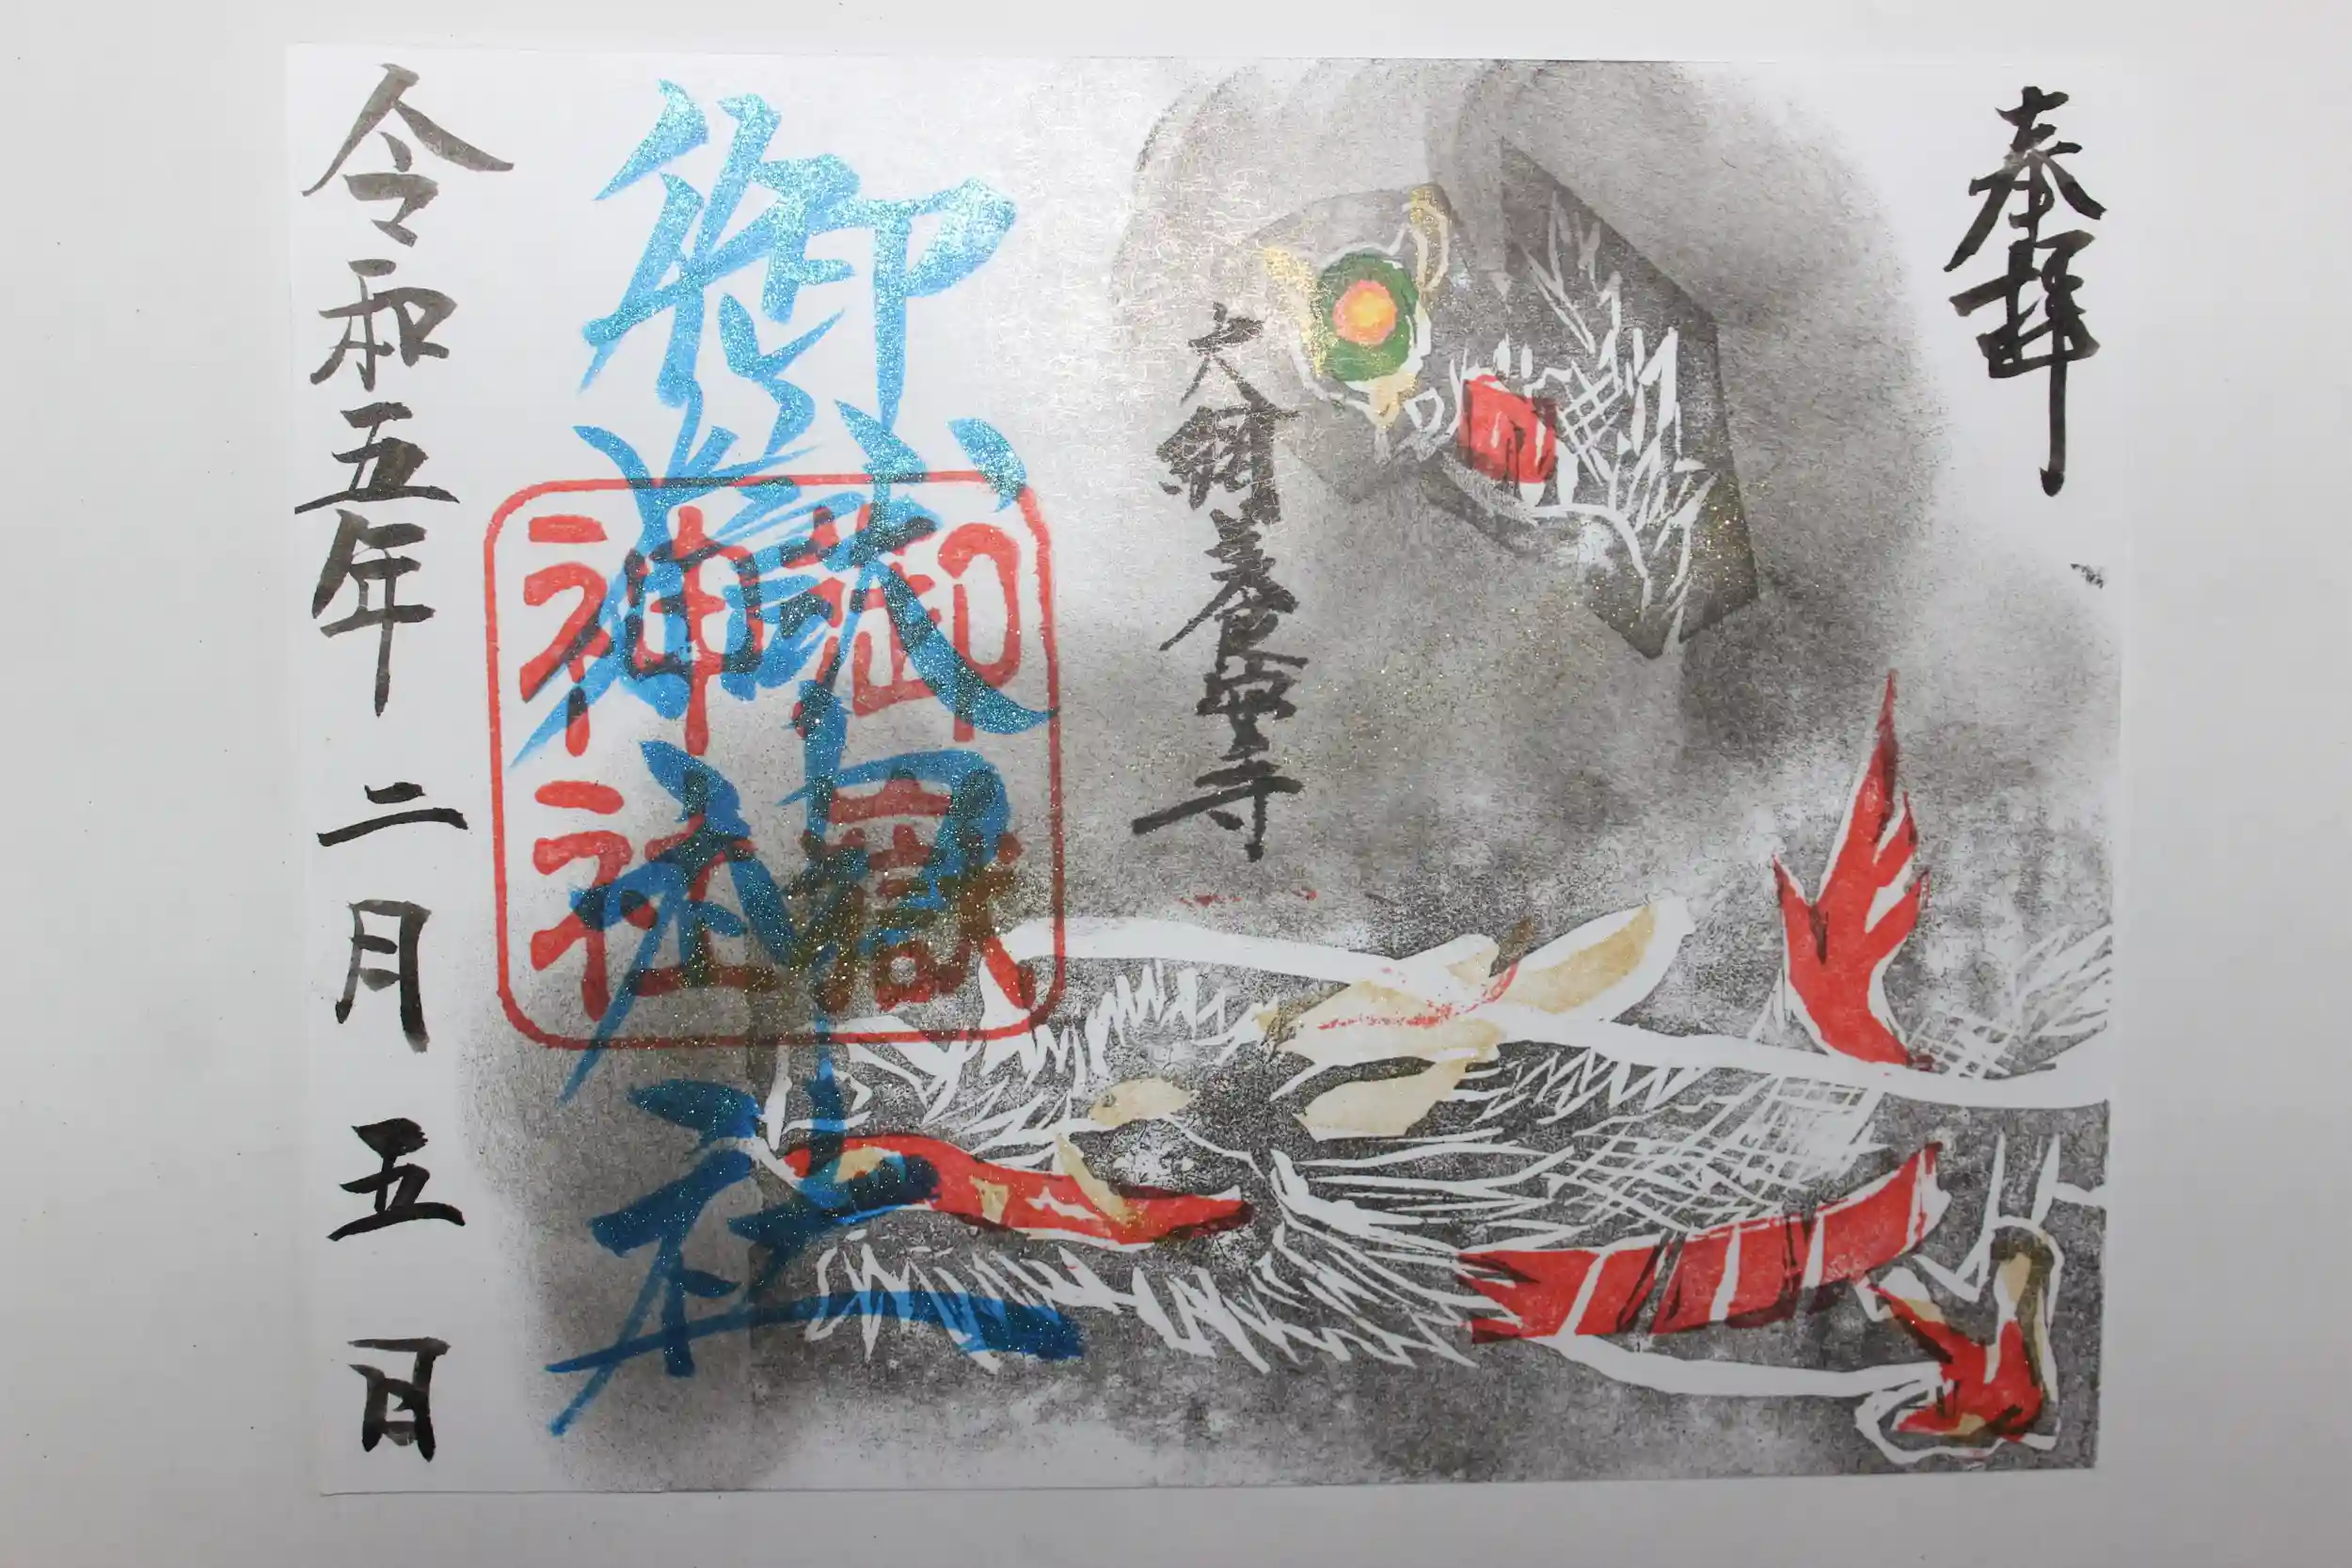 奉拝
大網養安寺
御嶽神社
御嶽
神社
令和五年二月五日